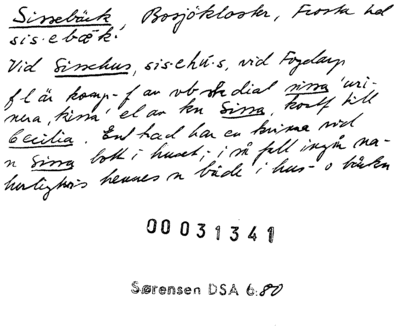 Sissebäck, Bosjökloster, Frosta hd
sis·ebæk.
Vid Sissehus, sis·ehú·s, vid Fogdarp,
f l är komp-f av vb dial sissa 'uri-
nera, kissa' el av kn Sissa, kortf till
Cecilia. Enl trad har en kvinna vid
n Sissa bott i huset; i så fall ingår na-
turligtvis hennes n både i hus- o bäckn
00031341
Sørensen DSA 6:80